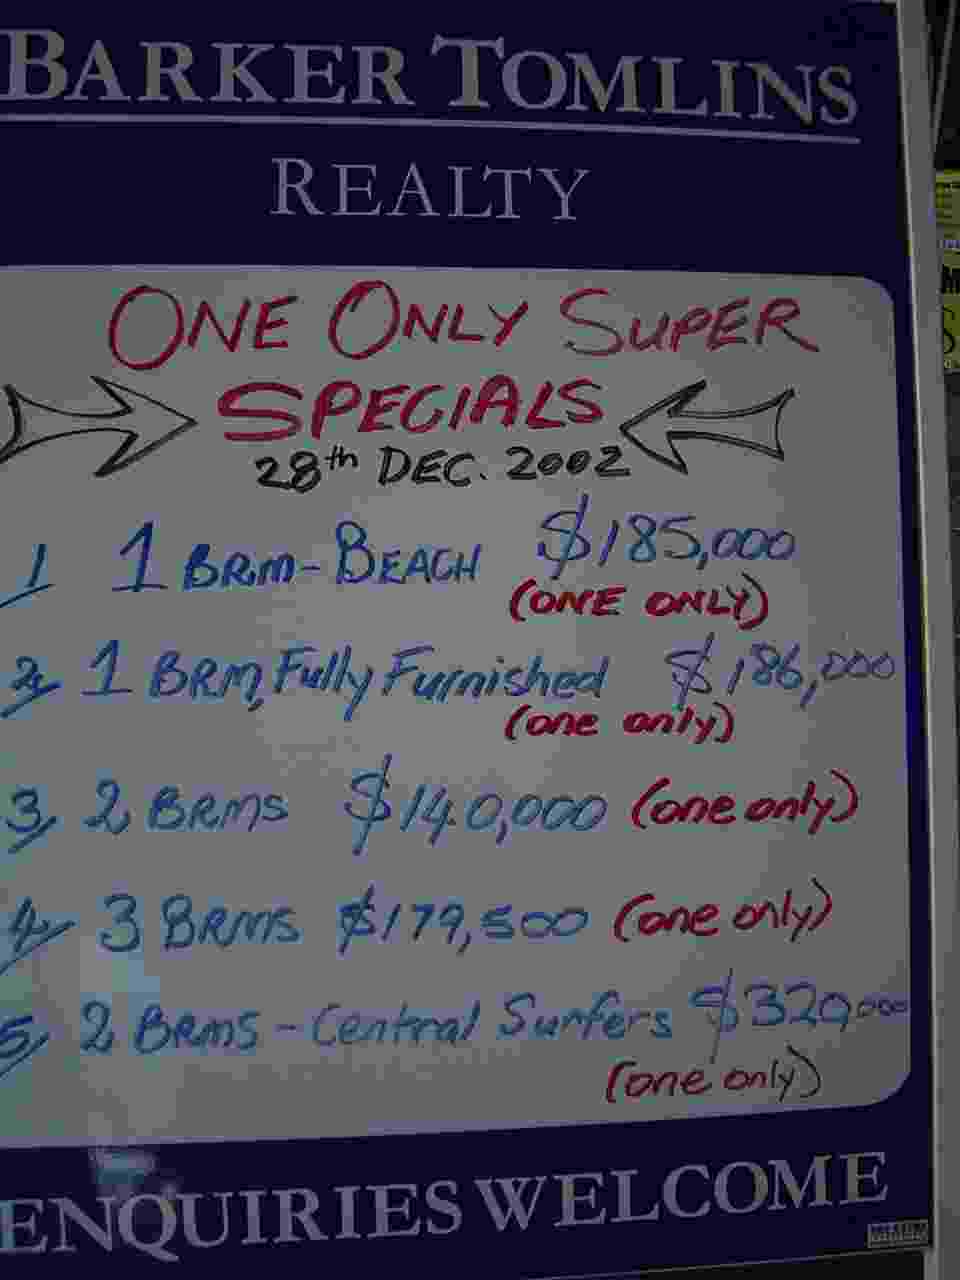 BARKER TOMLINS
REALTY
ONE ONLY SUPER
SPECIALS
28th DEC. 2002
1 1 BRM - BEACH $185,000
(ONE ONLY)
2, 1 BRM, Fully Furnished $186,000
(one only)
3, 2 BRMS $140,000 (one only)
4, 3 BRMS $179,500 (one only)
5, 2 BRMS - Central Surfers $320,000
(one only)
ENQUIRIES WELCOME